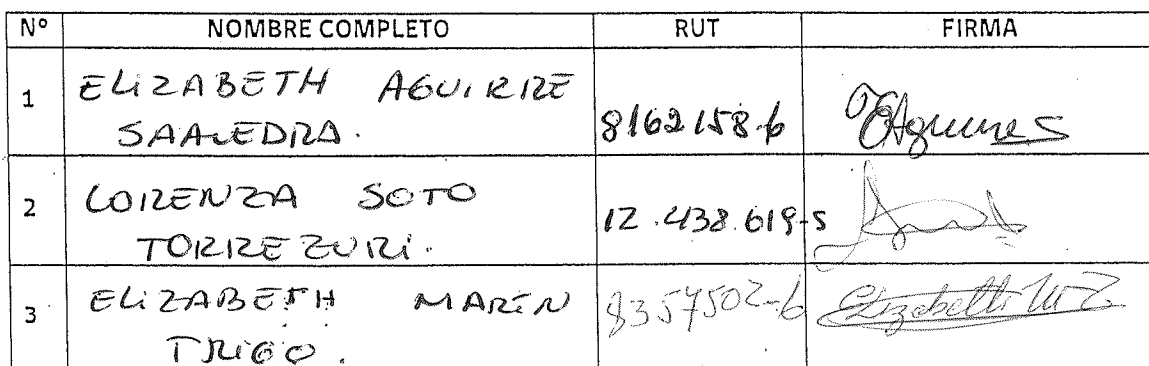 Nº NOMBRE COMPLETO RUT FIRMA
1 ELIZABETH AGUIRRE
SAAVEDRA. 8162158-6 EAguirreS
2 LORENZA SOTO
TORREZURI. 12.438.619-5
3 ELIZABETH MARIN
TRIGO. 8357502-6 Elizabeth M T